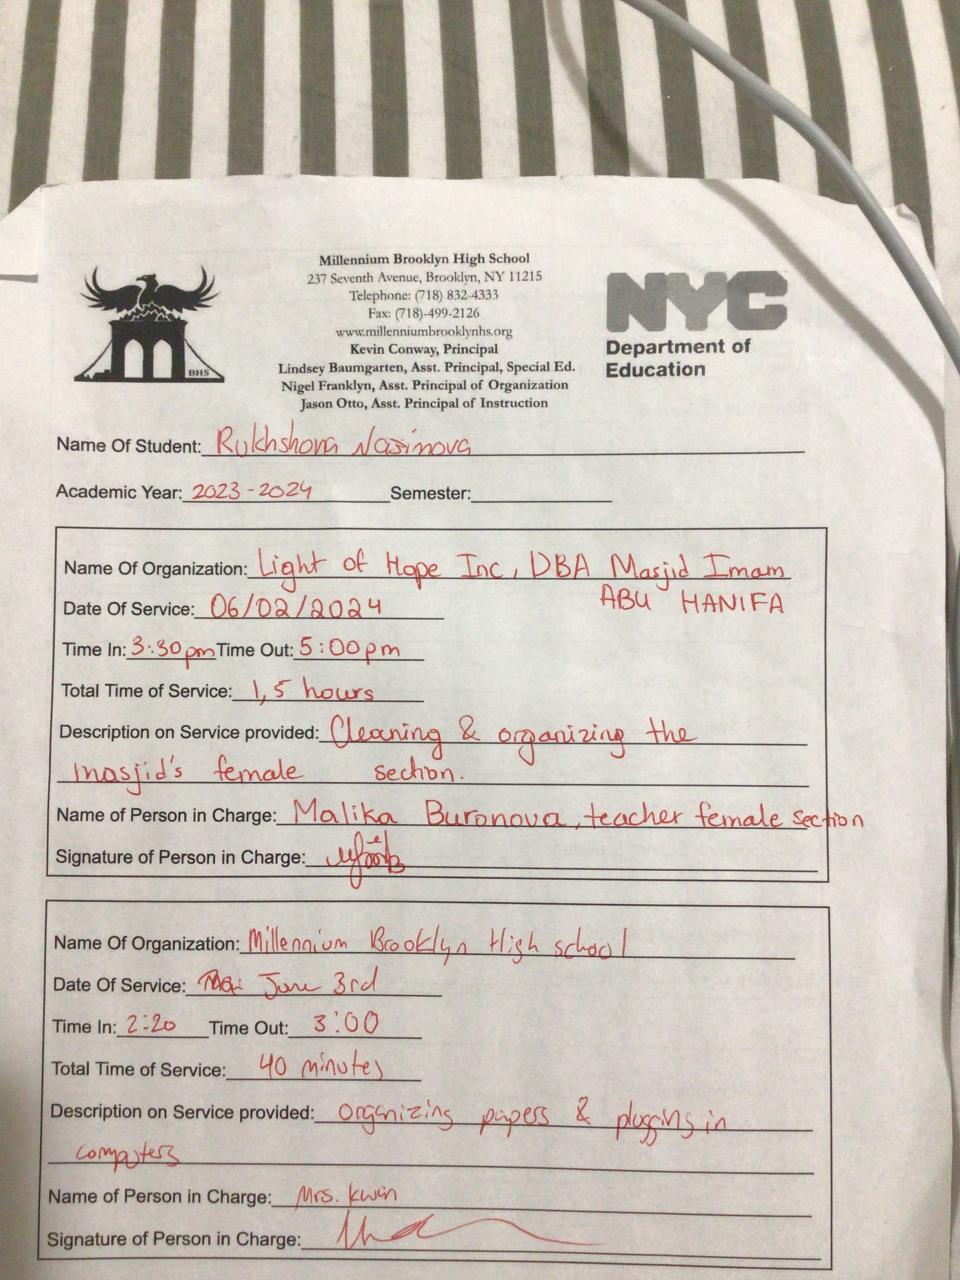 Millennium Brooklyn High School
237 Seventh Avenue, Brooklyn, NY 11215
Telephone: (718) 832-4333
Fax: (718)-499-2126
www.millenniumbrooklynhs.org
Kevin Conway, Principal
Lindsey Baumgarten, Asst. Principal, Special Ed.
Nigel Franklyn, Asst. Principal of Organization
Jason Otto, Asst. Principal of Instruction
BHS
NYC
Department of
Education
Name Of Student: Rukhshona Nasimova
Academic Year: 2023-2024 Semester:
Name Of Organization: Light of Hope Inc, DBA Masjid Imam
ABU HANIFA
Date Of Service: 06/02/2024
Time In: 3:30pm Time Out: 5:00pm
Total Time of Service: 1,5 hours
Description on Service provided: Cleaning & organizing the
masjid's female section.
Name of Person in Charge: Malika Buronova, teacher female section
Signature of Person in Charge:
Name Of Organization: Millennium Brooklyn High school
Date Of Service: June 3rd
Time In: 2:20 Time Out: 3:00
Total Time of Service: 40 minutes
Description on Service provided: organizing papers & plugging in
computers
Name of Person in Charge: Mrs. Kwin
Signature of Person in Charge: